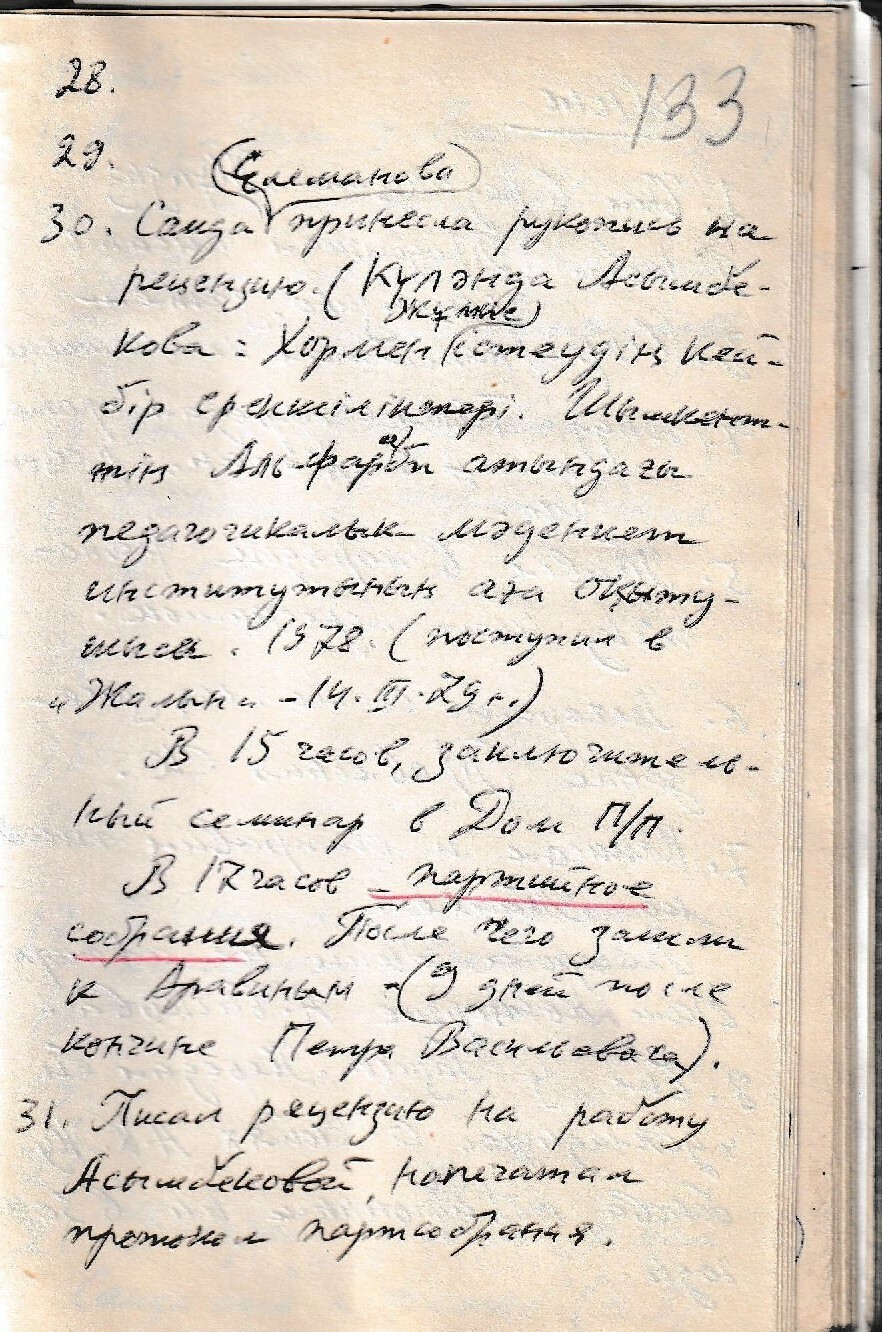 133
28.
29.
(Елеманова)
30. Саида принесла рукопись на
рецензию. (Кулэнда Асымбе-
Жұмыс)
кова: Хормен істеудің кей-
бір ерекшіліктері. Шымкент-
тің Аль-Фараби атындағы
педагогикалық мәдениет
институтының аға оқыту-
шысы. 1978. (поступил в
"Жалын" - 14.III.79г.)
В 15 часов, заключитель-
ный семинар в Дом п/п.
В 17 часов - партийное
собрания. После чего зашли
к Аравиным - (9 дней после
кончине Петра Васильевича).
31. Писал рецензию на работу
Асымбековой, напечатал
протокол партсобрания.